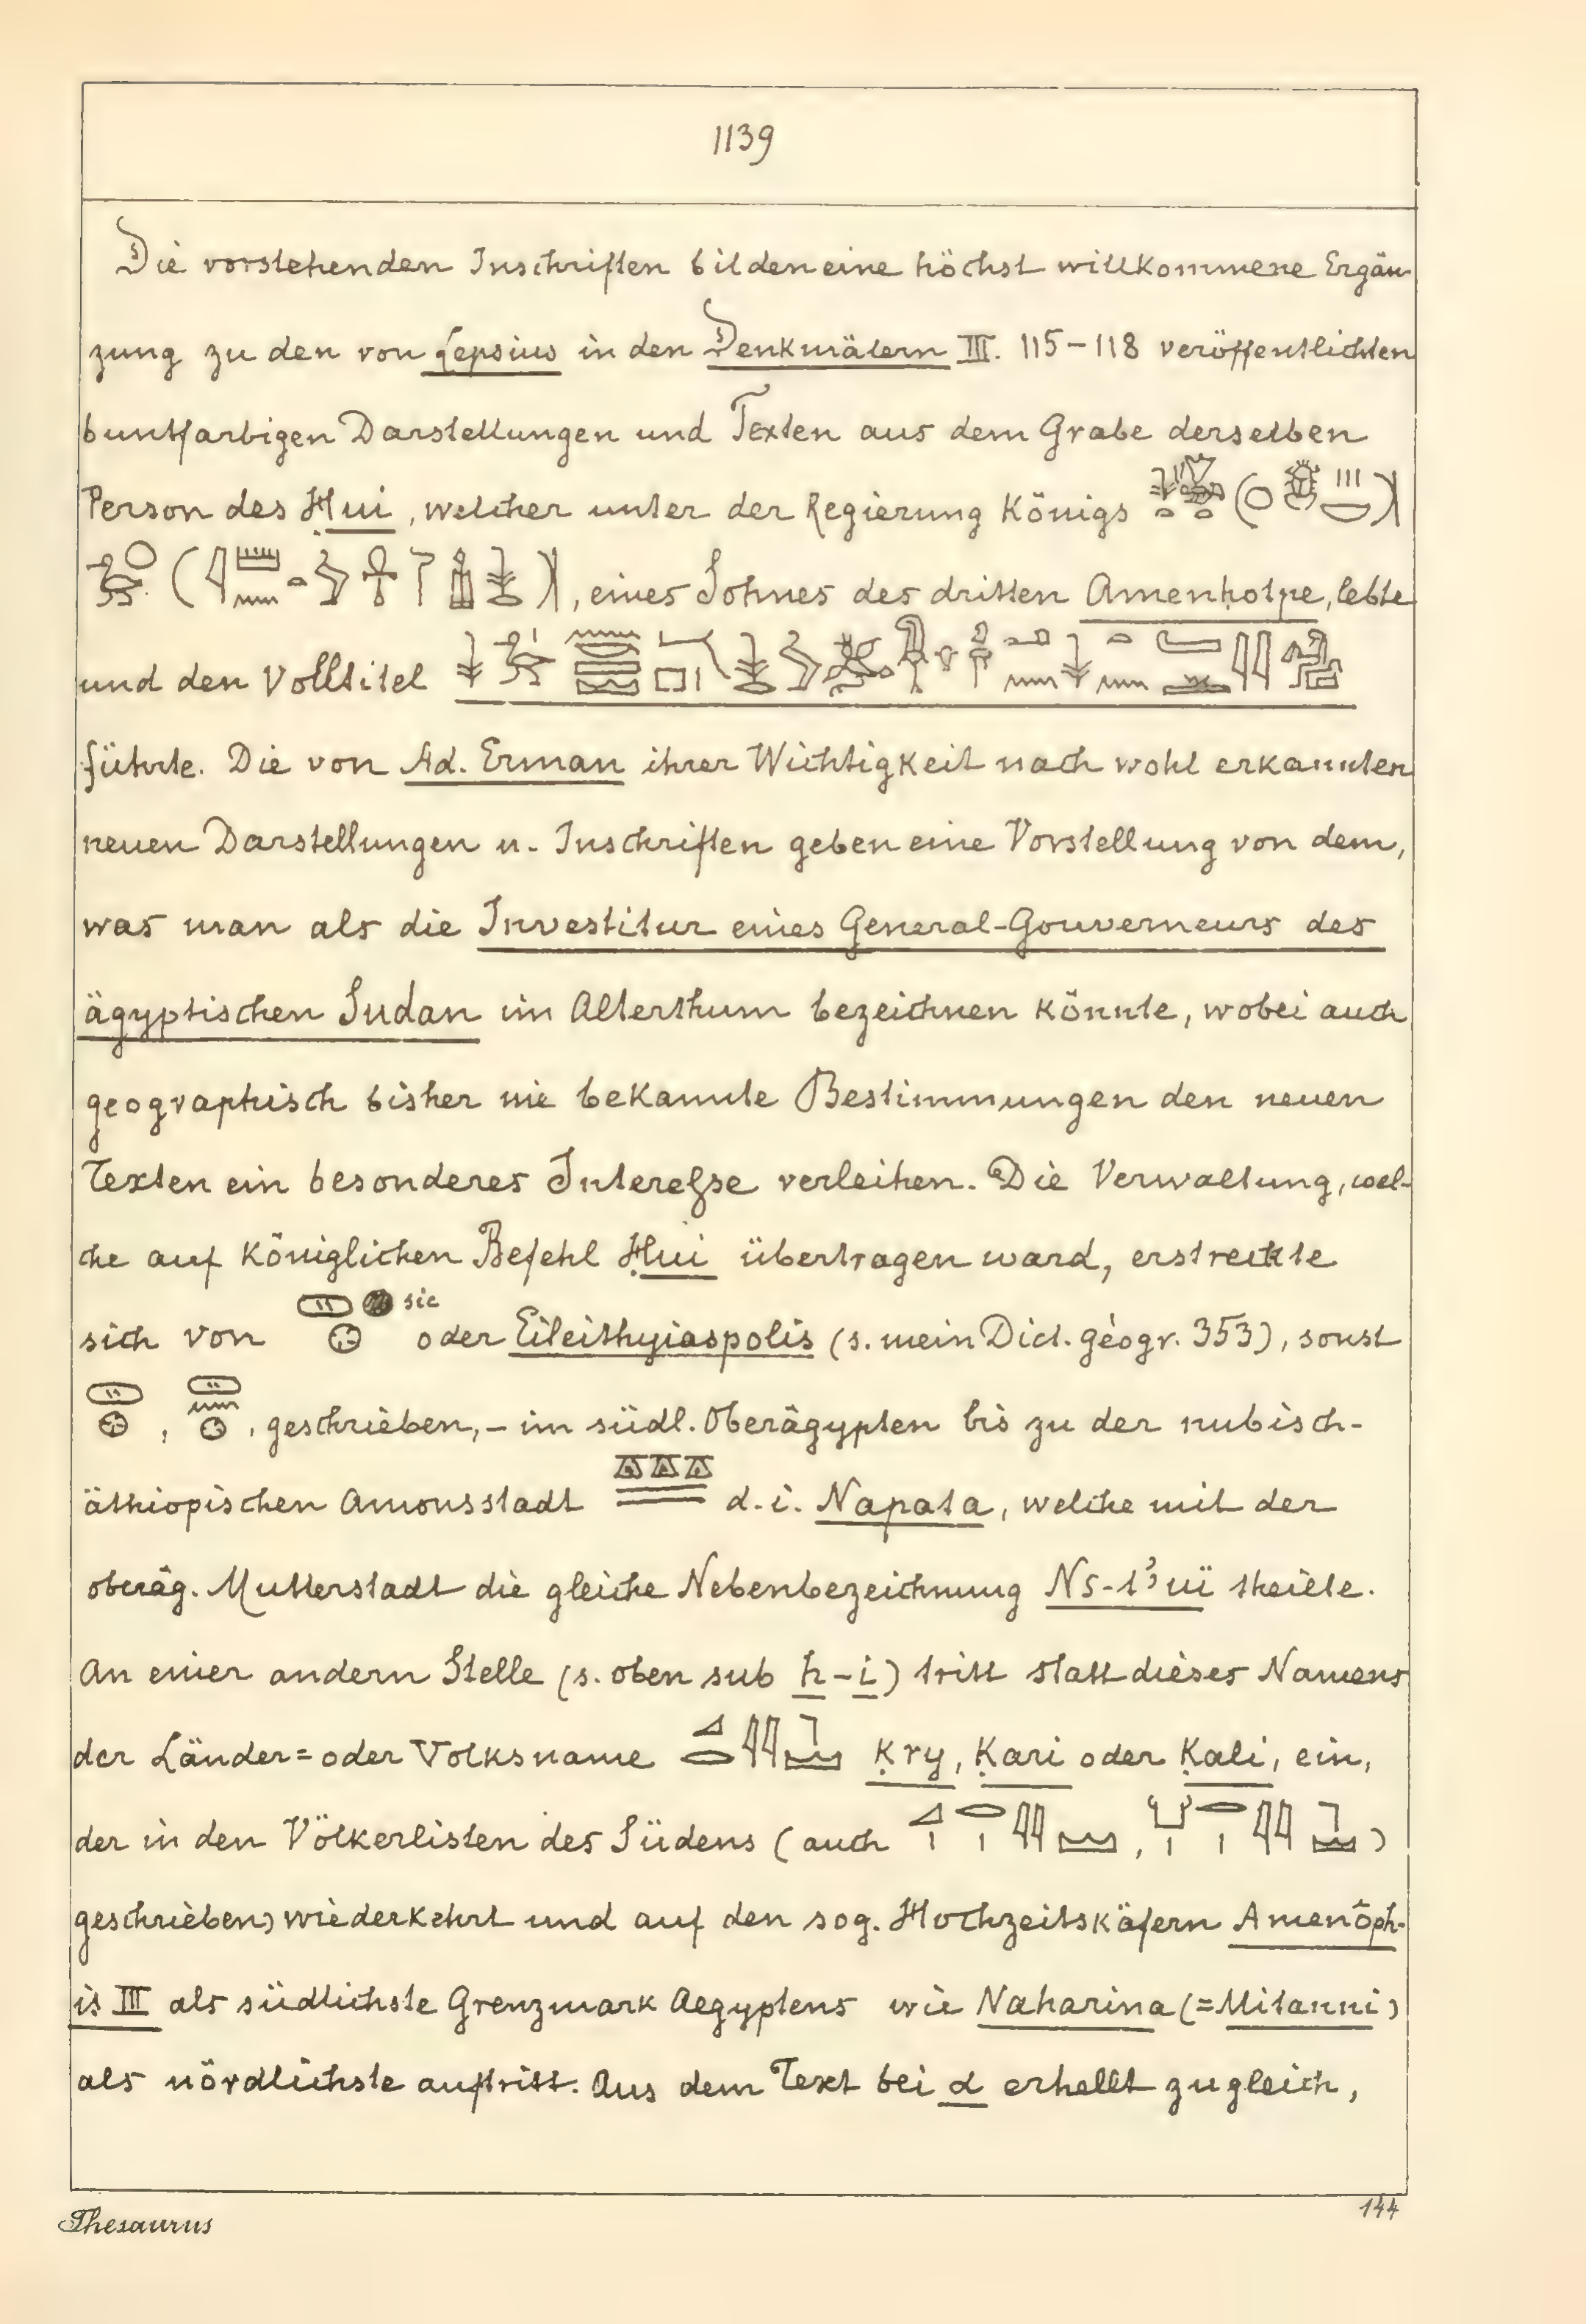 1139
Die vorstehenden Inschriften bilden eine höchst willkommene Ergän-
zung zu den von Lepsius in den Denkmälern III. 115–118 veröffentlichten
buntfarbigen Darstellungen und Texten aus dem Grabe derselben
Person des Ḥui, welcher unter der Regierung Königs
, eines Sohnes des dritten Amenḥotpe, lebte
und den Volltitel
führte. Die von Ad. Erman ihrer Wichtigkeit nach wohl erkannten
neuen Darstellungen u. Inschriften geben eine Vorstellung von dem,
was man als die Investitur eines General-Gouverneurs des
ägyptischen Sudan im Alterthum bezeichnen könnte, wobei auch
geographisch bisher nie bekannte Bestimmungen den neuen
Texten ein besonderes Interesse verleihen. Die Verwaltung, wel-
che auf Königlichen Befehl Ḥui übertragen ward, erstreckte
sich von sic oder Eileithyiaspolis (s. mein Dict. géogr. 353), sonst
, , geschrieben, – im südl. Oberägypten bis zu der nubisch-
äthiopischen Amonsstadt d. i. Napata, welche mit der
oberäg. Mutterstadt die gleiche Nebenbezeichnung Ns-t3uï theilte.
An einer andern Stelle (s. oben sub h–i) tritt statt dieses Namens
der Länder= oder Volksname Ḳry, Ḳari oder Ḳali, ein,
der in den Völkerlisten des Südens (auch , )
geschrieben) wiederkehrt und auf den sog. Hochzeitskäfern Amenôph-
is III als südlichste Grenzmark Aegyptens wie Naharina (=Mitanni)
als nördlichste auftritt. Aus dem Text bei d erhellt zugleich,
Thesaurus 144